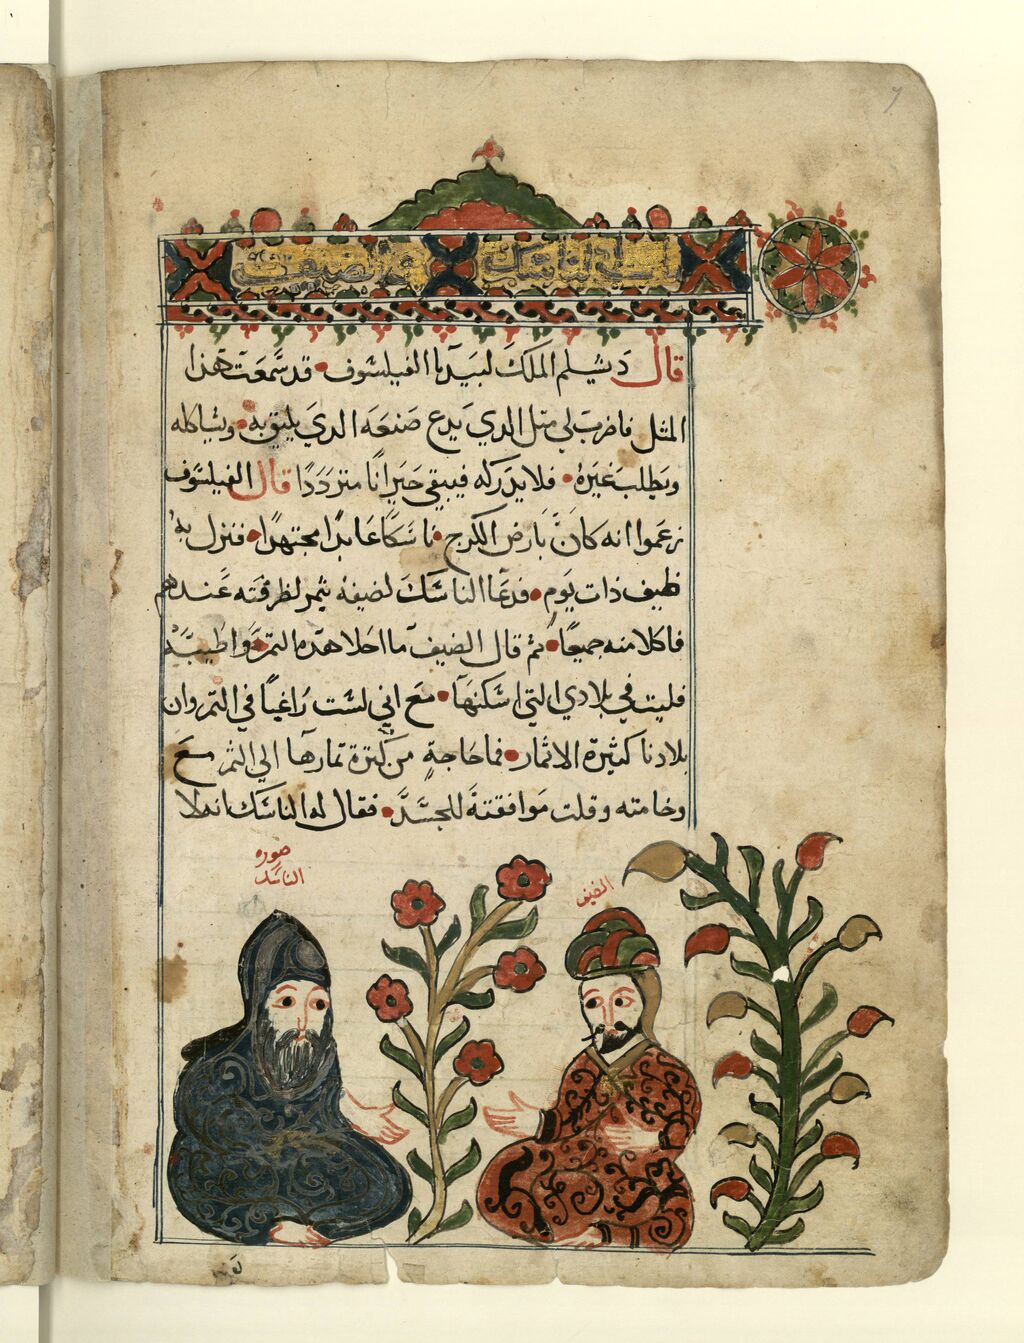 باب الناسك والضيف
قال دبشليم الملك لبيدبا الفيلسوف قد سمعت هذا
المثل فاضرب لي مثل الدي يدع صنعه الدي يليق به ويشاكله
ويطلب غيره فلا يدركه فيبقي حيرانا مترددا قال الفيلسوف
زعموا انه كان بارض الكرج ناسكا عابدا مجتهدا فنزل به
ظيف ذات يوم فدعا الناسك لضيفه بتمر لظرفته عندهم
فاكلا منه جميعا ثم قال الضيف ما احلا هده التمر واطيبه
فليت في بلادي التي اسكنها مع اني لست راغبا في التمر وان
بلادنا كثيرة الاثمار فما حاجة من كثرة ثمارها الي الثمر مع
وخامته وقلت موافقتة للجسد فقال له الناسك انه لا
صوره
الناسك
الضيف